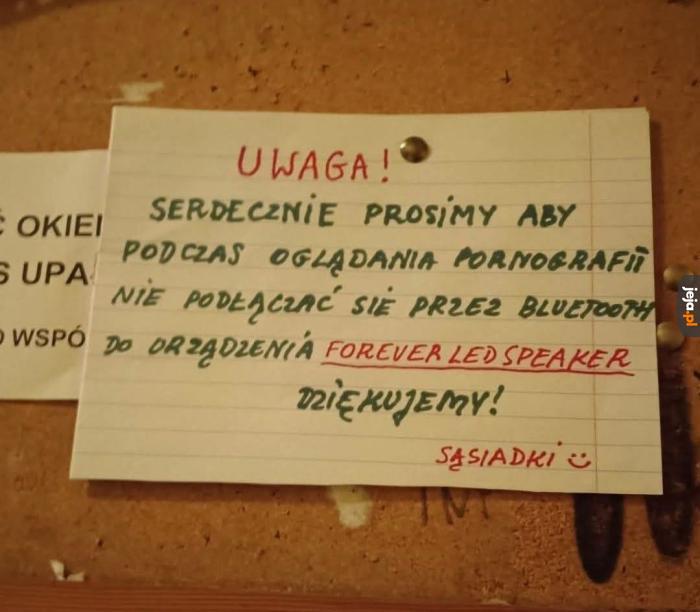 UWAGA!
SERDECZNIE PROSIMY ABY
PODCZAS OGLĄDANIA PORNOGRAFII
NIE PODŁĄCZAĆ SIE PRZEZ BLUETOOTH
DO URZĄDZENIA FOREVER LED SPEAKER
DZIĘKUJEMY!
SĄSIADKI :)
Ć OKIEN
S UPA
O WSPÓ
jeja.pl